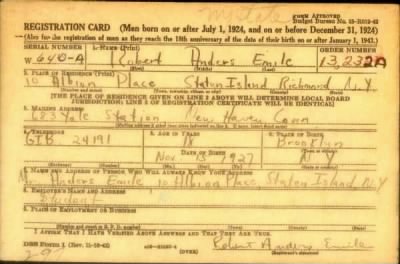 State
FORM APPROVED
REGISTRATION CARD (Men born on or after July 1, 1924, and on or before December 31, 1924)
(Also for the registration of men as they reach the 18th anniversary of the date of their birth on or after January 1, 1943.)
SERIAL NUMBER 1. NAME (Print) ORDER NUMBER
W 640-A Robert Anders Emile 13,232A
2. PLACE OF RESIDENCE (Print)
10 Albion Place Staten Island Richmond N.Y.
[THE PLACE OF RESIDENCE GIVEN ON LINE 2 ABOVE WILL DETERMINE LOCAL BOARD
JURISDICTION; LINE 2 OF REGISTRATION CERTIFICATE WILL BE IDENTICAL]
3. MAILING ADDRESS
683 Yale Station New Haven Conn
4. TELEPHONE 5. AGE IN YEARS 6. PLACE OF BIRTH
GIB. 24191 18 Brooklyn
DATE OF BIRTH
Nov. 15 1927 N.Y.
7. NAME AND ADDRESS OF PERSON WHO WILL ALWAYS KNOW YOUR ADDRESS
Mr. Anders Emile, 10 Albion Place, Staten Island, N.Y.
8. EMPLOYER'S NAME AND ADDRESS
Student
9. PLACE OF EMPLOYMENT OR BUSINESS
I AFFIRM THAT I HAVE VERIFIED ABOVE ANSWERS AND THAT THEY ARE TRUE.
DSS Form 1 (OVER) Robert Anders Emile